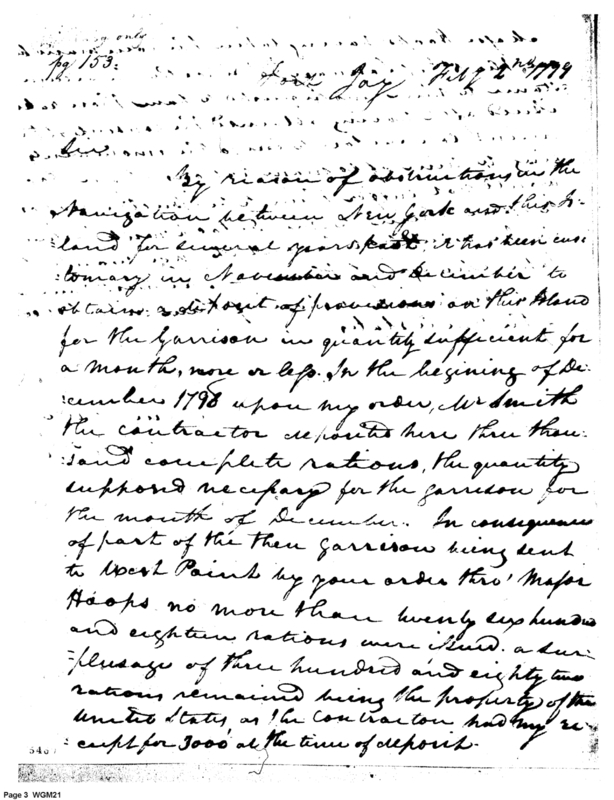 pg 153.
Fort Jay Feb.y 2nd 1799
Sir
By reason of obstructions in the
Navigation between New York and this Is-
land for several years past it has been cus-
tomary in November and December to
obtain a deposit of provisions on this Island
for the Garrison in quantity sufficient for
a month, more or less. In the begining of De-
:cember 1798 upon my order, Mr Smith
the contractor deposited here three thou-
:sand complete rations, the quantity
supposed necessary for the garrison for
the month of December. In consequence
of part of the then Garrison being sent
to West Point by your order thro' Major
Hoops no more than twenty six hundred
and eighteen rations were issued. a sur-
:plusage of three hundred and eighty two
rations remained being the property of the
United States as the contractor had my re-
:ceipt for 3000 at the time of deposit.
Page 3 WGM21